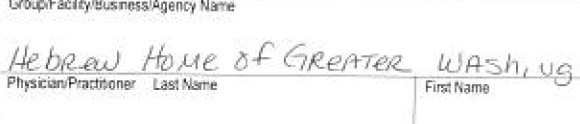 Group/Facility/Business/Agency Name
Hebrew Home of GREATER WASh, ug
Physician/Practitioner Last Name First Name